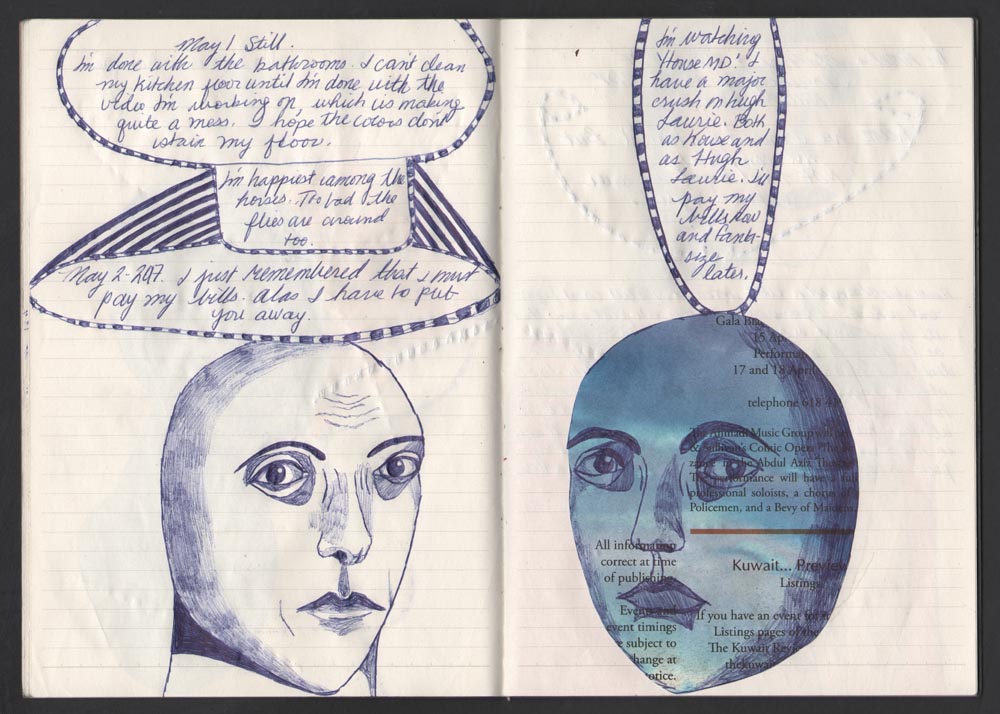 May 1 Still.
I'm done with the bathrooms. I can't clean
my kitchen floor until I'm done with the
video I'm working on, which is making
quite a mess. I hope the colors don't
stain my floor.
I'm happiest among the
horses. Too bad the
flies are around
too.
May 2-2017. I just remembered that I must
pay my bills. Alas I have to put
you away.
I'm watching
'House MD'. I
have a major
crush on Hugh
Laurie. Both
as House and
as Hugh
Laurie. I'll
pay my
bills now
and fanta-
size
later.
Gala
15 Ap
Performa
17 and 18 April
telephone 618 4
The Ahmadi Music Group will
& Sullivan's Comic Opera
in the Abdul Aziz
The performance will have a
professional soloists, a chorus of
Policemen, and a Bevy of Maidens
All information
correct at time
of publishing.
Kuwait... Preview
Listings
Events and
event timings
are subject to
change at
notice.
If you have an event for
Listings pages of the
The Kuwait Review
thekuwai